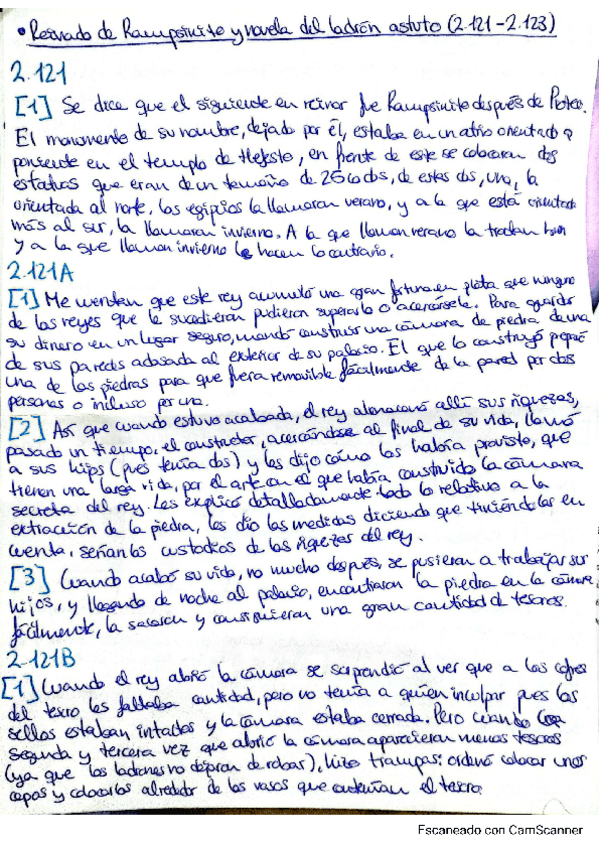 • Reinado de Rampsinito y novela del ladrón astuto (2.121-2.123)
2.121
[1] Se dice que el siguiente en reinar fue Rampsinito después de Proteo.
El monumento de su nombre, dejado por él, estaba en un atrio orientado a
poniente en el templo de Hefesto, en frente de este se colocaron dos
estatuas que eran de un tamaño de 25 codos, de estas dos, una, la
orientada al norte, los egipcios la llamaron verano, y a la que está orientada
más al sur, la llamaron invierno. A la que llaman verano la tratan bien
y a la que llaman invierno le hacen lo contrario.
2.121A
[1] Me cuentan que este rey acumuló una gran fortuna en plata que ninguno
de los reyes que le sucedieran pudieron superarlo o acercársele. Para guardar
su dinero en un lugar seguro, mandó construir una cámara de piedra de una
de sus paredes adosada al exterior de su palacio. El que lo construyó preparó
una de las piedras para que fuera removible fácilmente de la pared por dos
personas o incluso por una.
[2] Así que cuando estuvo acabada, el rey almacenó allí sus riquezas,
pasado un tiempo, el constructor, acercándose al final de su vida, llamó
a sus hijos (pues tenía dos) y les dijo cómo los había provisto, que
tienen una larga vida, por el arte en el que había construido la cámara
secreta del rey. Les explicó detalladamente todo lo relativo a la
extracción de la piedra, les dio las medidas diciendo que teniéndolas en
cuenta, serían los custodios de las riquezas del rey.
[3] Cuando acabó su vida, no mucho después, se pusieron a trabajar sus
hijos, y llegando de noche al palacio, encontraron la piedra en la cámara
fácilmente, la sacaron y consiguieron una gran cantidad de tesoros.
2.121B
[1] Cuando el rey abrió la cámara se sorprendió al ver que a los cofres
del tesoro les faltaba cantidad, pero no tenía a quien inculpar pues los
sellos estaban intactos y la cámara estaba cerrada. Pero cuando
segunda y tercera vez que abrió la cámara aparecieron menos tesoros
(ya que los ladrones no dejaron de robar), hizo trampas: ordenó colocar unos
cepos y colocarlos alrededor de los vasos que contenían el tesoro
Escaneado con CamScanner